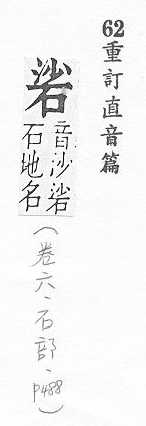 62重訂直音篇
硰
音沙硰
石地名
(卷六、石部、P488)